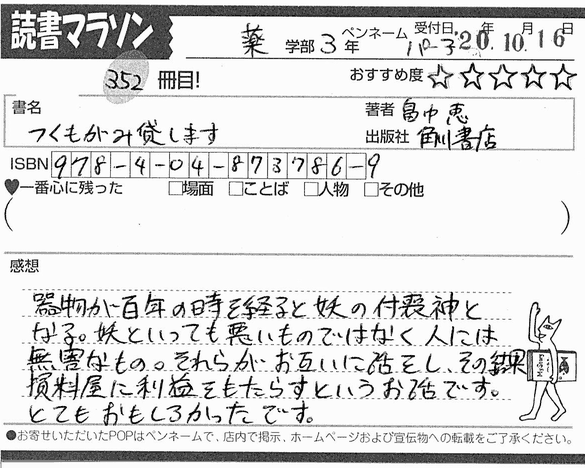 読書マラソン
薬 学部 3年 ペンネーム パーマ 受付日 '20年10月16日
352 冊目! おすすめ度 ☆☆☆☆☆
書名 著者 畠中恵
つくもがみ貸します 出版社 角川書店
ISBN 978-4-04-873786-9
♥一番心に残った □場面 □ことば □人物 □その他
( )
感想
器物が百年の時を経ると妖の付喪神と
なる。妖といっても悪いものではなく人には
無害なもの。それらがお互いに話をし、その結果
損料屋に利益をもたらすというお話です。
とてもおもしろかったです。
●お寄せいただいたPOPはペンネームで、店内で掲示、ホームページおよび宣伝物への転載をご了承ください。